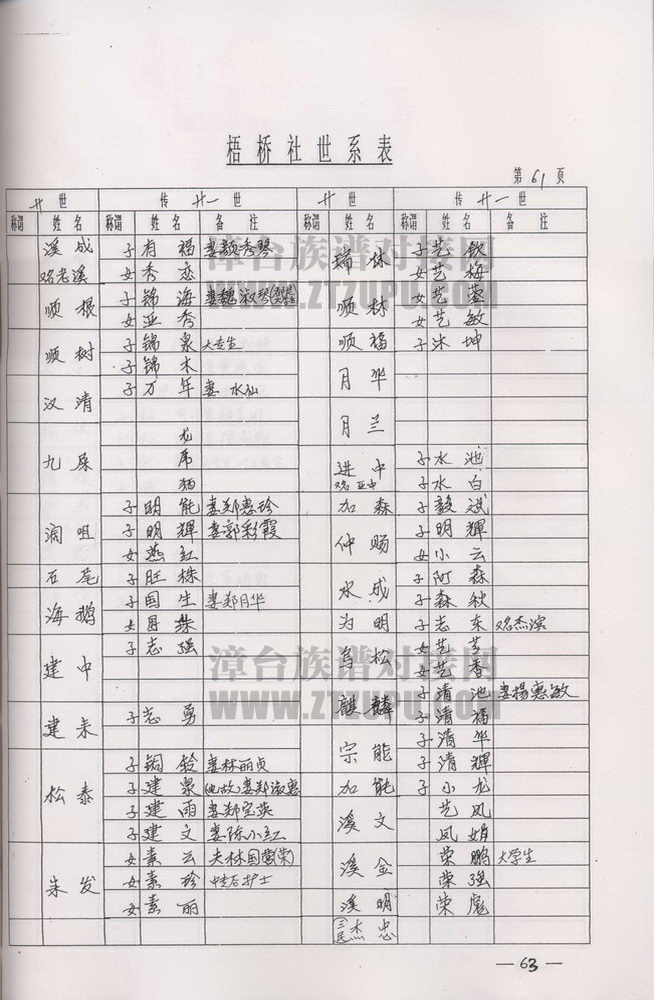 梧桥社世系表
第61页
廿世 传廿一世 廿世 传廿一世
称谓 姓名 称谓 姓名 备注 称谓 姓名 称谓 姓名 备注
溪成 子 有福 妻颜秀琴 瑞林 子 艺钦
又名老溪 女 秀恋 女 艺梅
顺根 子 锦海 妻魏淑琴 顺林 女 艺莹
女 亚秀 女 艺敏
顺树 子 锦泉 大专生 顺福 子 沐坤
子 锦木 月华
汉清 子 万年 妻水仙
龙 月兰
九屎 席 进中 子 水池
猫 又名亚中 子 水白
润咀 子 明能 妻郑惠珍 加森 子 毅斌
子 明辉 妻郭彩霞 仲赐 子 明辉
女 燕红 女 小云
石尾 子 旺株 水成 子 阿森
海鹅 子 国生 妻郑月华 子 森秋
女 为明 子 志东 又名杰滨
建中 子 志强 乌松 女 艺芳
女 艺香
麒麟 子 清池 妻杨惠敏
建来 子 志勇 子 清福
宗能 子 清华
松泰 子 铜铃 妻林丽贞 子 清辉
子 建泉 妻郑淑惠 加能 子 小龙
子 建雨 妻郑宝英 溪文 艺凤
子 建文 妻陈小红 凤娟
朱发 女 素云 夫林国 溪金 荣鹏 大学生
女 素珍 护士 荣强
女 素丽 溪明 荣彪
三民 杰忠
—63—
漳台族谱对接网
WWW.ZTZUPU.COM
漳台族谱对接网
WWW.ZTZUPU.COM